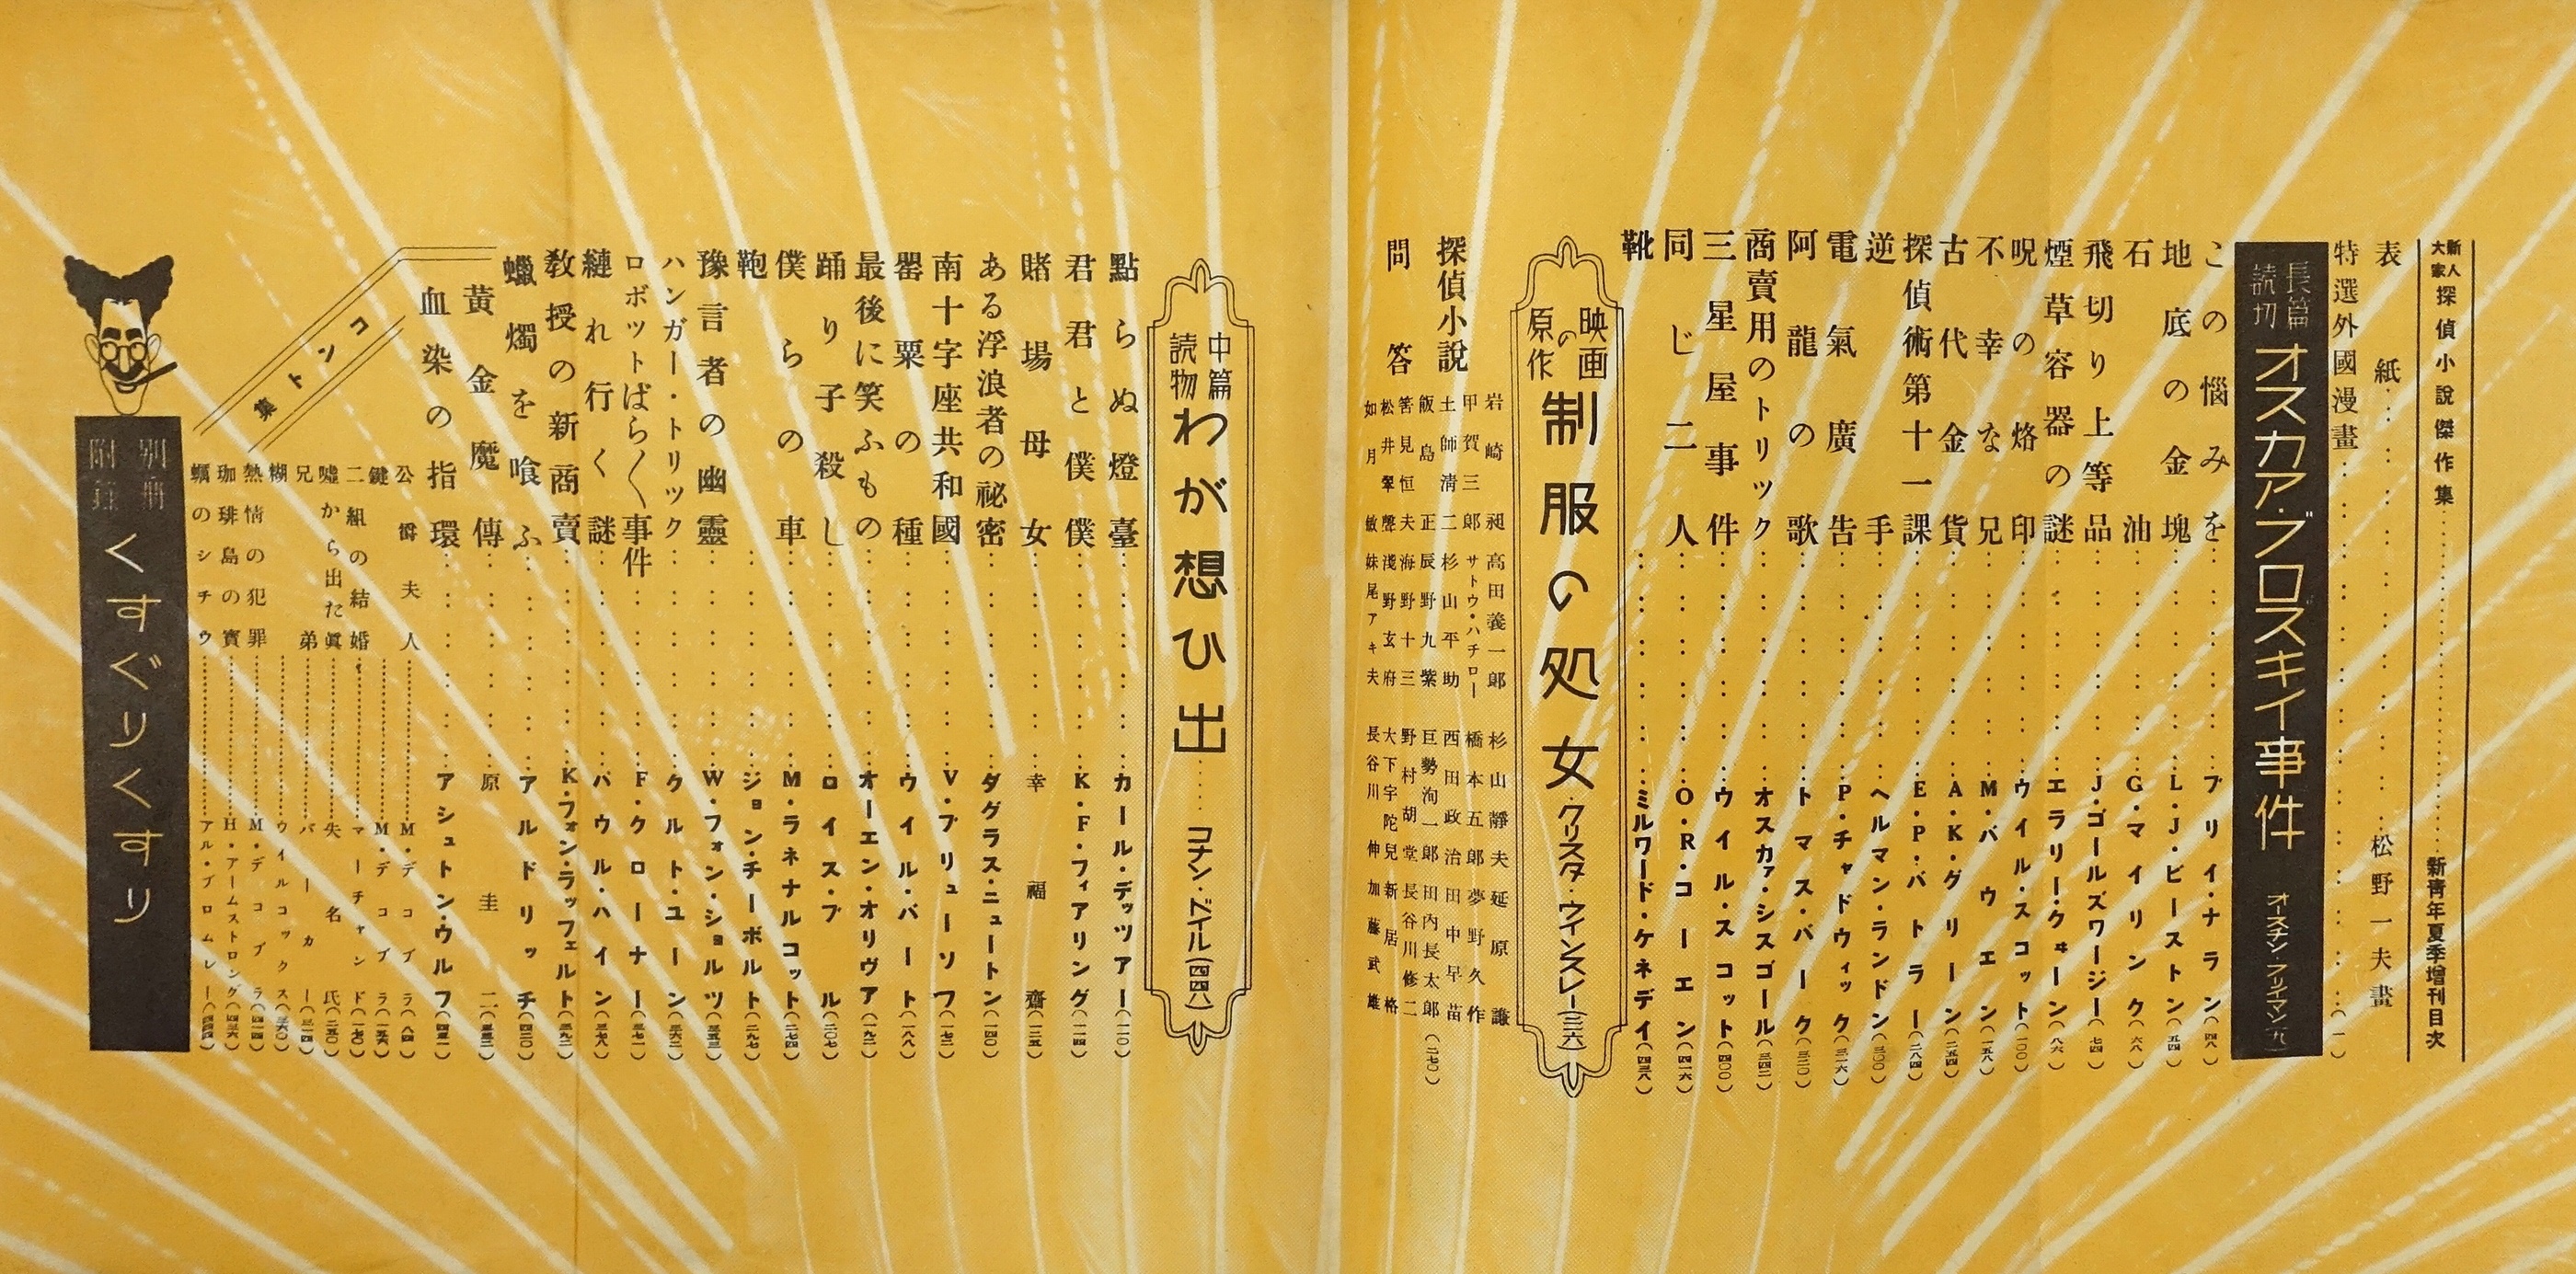 新人大家探偵小説傑作集………新青年夏季増刊目次
表紙………松野一夫畫
特選外國漫畫………(一)
長篇読切 オスカア・ブロズキイ事件 オースチン・フリイマン(九)
この悩みを………ブリイ・ナラン(四八)
地底の金塊………L・J・ビーストン(五四)
石油………G・マイリンク(六八)
飛切り上等品………J・ゴールズワージー(七四)
煙草容器の謎………エラリー・クヰーン(八六)
呪の烙印………ウイルスコット(一〇〇)
不幸な兄………M・バウエン(一五八)
古代金貨………A・K・グリーン(二五四)
探偵術第十一課………E・P・バトラー(二八四)
逆手………ヘルマン・ランドン(三〇〇)
電氣廣告………P・チャドウィック(三一六)
阿龍の歌………トマス・バーク(三二〇)
商賣用のトリック………オスカア・シスゴール(三四二)
三星屋事件………ウイルスコット(四〇〇)
同じ二人………O・R・コーエン(四一六)
靴………ミルワード・ケネデイ(四三八)
映画の原作 制服の処女・クリスタ・ウインスレー(三六)
探偵小說問答
岩崎昶 高田義一郎 杉山靜夫 延原謙
甲賀三郎 サトウ・ハチロー 橋本五郎 夢野久作
土師清二 杉山平助 西田政治 田中早苗
飯島正 辰野九紫 巨勢洵一郎 田内長太郎(二七〇)
筈見恒夫 海野十三 野村胡堂 長谷川修二
松井翠聲 淺野玄府 大下宇陀兒 新居格
如月敏 妹尾アキ夫 長谷川伸 加藤武雄
中篇読物 わが想ひ出……コナン・ドイル(四四八)
點らぬ燈臺………カール・デッツアー(一一〇)
君君と僕僕………K・F・フィアリング(一一四)
賭場母女………幸福齋(一三五)
ある浮浪者の祕密………ダグラス・ニュートン(一四〇)
南十字座共和國………V・ブリューソフ(一七二)
罌粟の種………ウイルバート(一八八)
最後に笑ふもの………オーエン・オリヴア(一九二)
踊り子殺し………ロイス・ブル(二〇七)
僕らの車………M・ラネナルコット(二七四)
鞄………ジョン・チーボルト(二九七)
豫言者の幽靈………W・フォン・ショルツ(三五三)
ハンガー・トリック………クルト・ユーン(三六二)
ロボットばら〱事件………F・クローナー(三七一)
縺れ行く謎………パウル・ハイン(三七八)
敎授の新商賣………K・フォン・ラッフェルト(三九二)
蠟燭を喰ふ………アルドリッチ(四二〇)
黃金魔傳………原圭二
血染の指環………アシュトン・ウルフ(四五一)
コント集
公爵夫人………M・デコブラ(八四)
鍵………M・デコブラ(一五六)
二組の結婚………マーチャンド(一七〇)
嘘から出た眞………失名氏(二五〇)
兄弟………バーカー(三一四)
糊………ウイルコックス(三六〇)
熱情の犯罪………M・デコブラ(四一四)
珈琲島の寶………H・アームストロング(四三六)
蠣のシチウ………アル・ブロムレー(四四五)
別冊附錄 くすぐりくすり